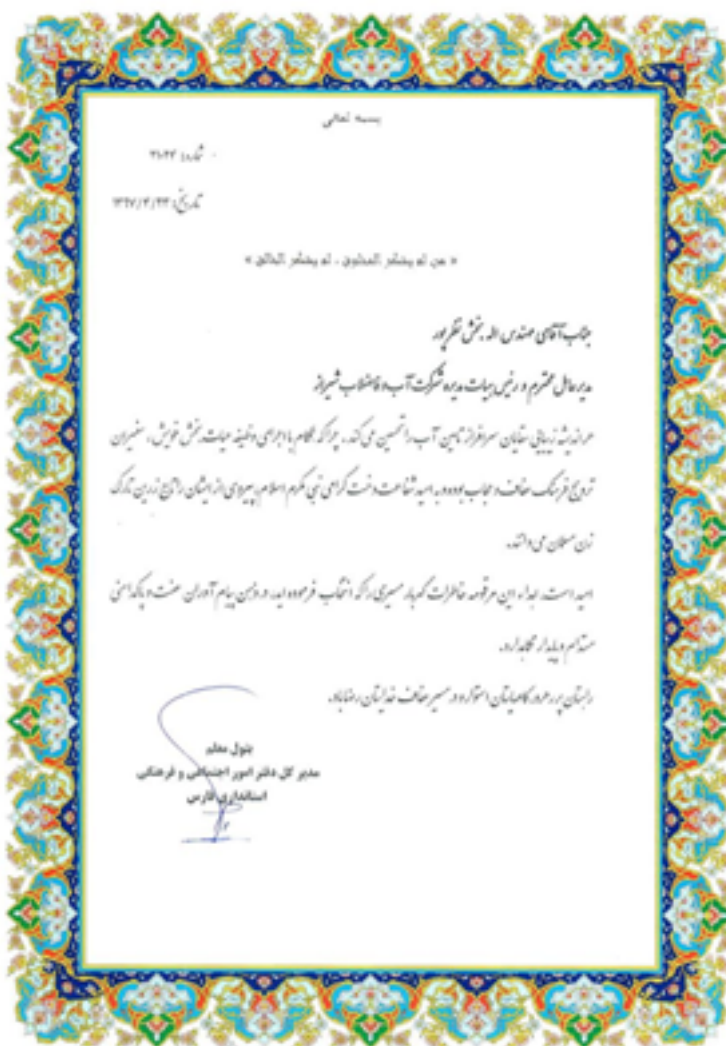 بسمه تعالی
شماره: ۳۱۰۲۳
تاریخ: ۱۳۹۷/۴/۲۳
« من لم یشکر المخلوق ، لم یشکر الخالق »
جناب آقای مهندس اله بخش نظرپور
مدیرعامل محترم و رئیس هیات مدیره شرکت آب و فاضلاب شیراز
هر اندیشه زیبایی سقایان سرافراز تامین آب را تحسین می کند. چراکه همگام با اجرای وظیفه حیات بخش خویش، سفیران
ترویج فرهنگ عفاف و حجاب بوده و به امید شفاعت دخت گرامی نبی مکرم اسلام، پیروی از ایشان را تاج زرین تارک
زن مسلمان می دانند.
امید است اهداء این مرقومه خاطرات گهربار مسیری را که انتخاب فرموده اید، در ذهن پیام آوران عفت و پاکدامنی
مستدام و پایدار نگاهدارد.
استوار و در مسیر عفاف خدایتان رضا باد.
بتول معلم
مدیر کل دفتر امور اجتماعی و فرهنگی
استانداری فارس